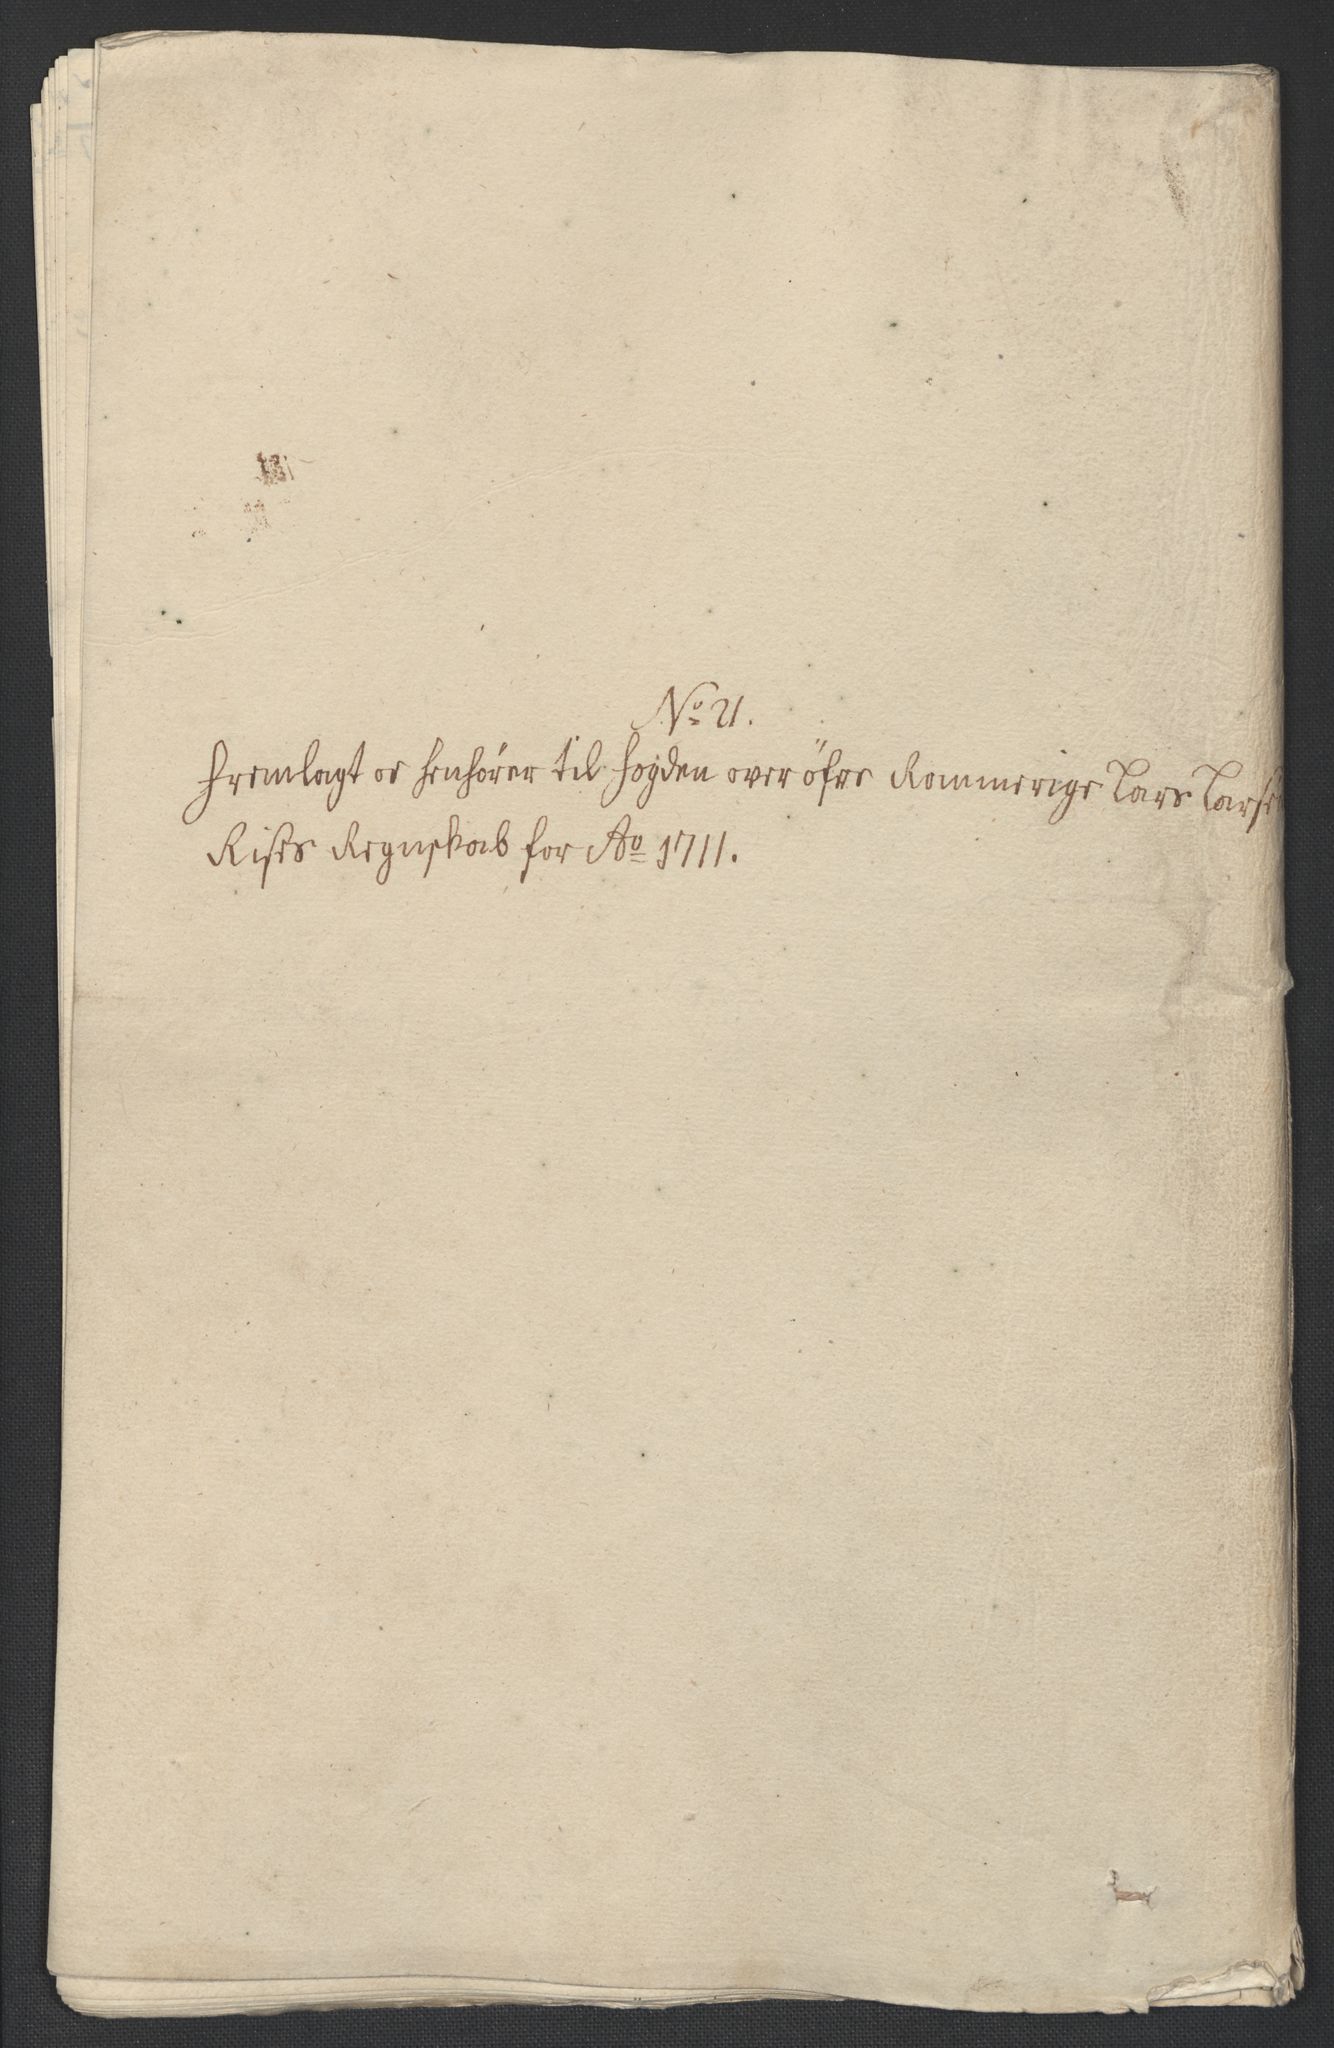 No 21.
Fremlagt oc henhörer til fogden over öfre Rommerige Lars Larse
Rises Regnskab for Ao 1711.